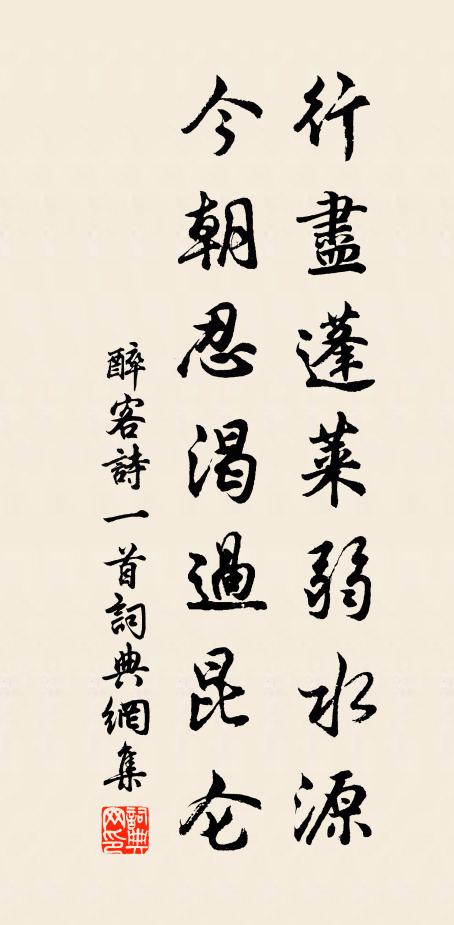 行盡蓬萊弱水源
今朝忍渴過昆仑
醉客詩一首詞典網集
詞典网印